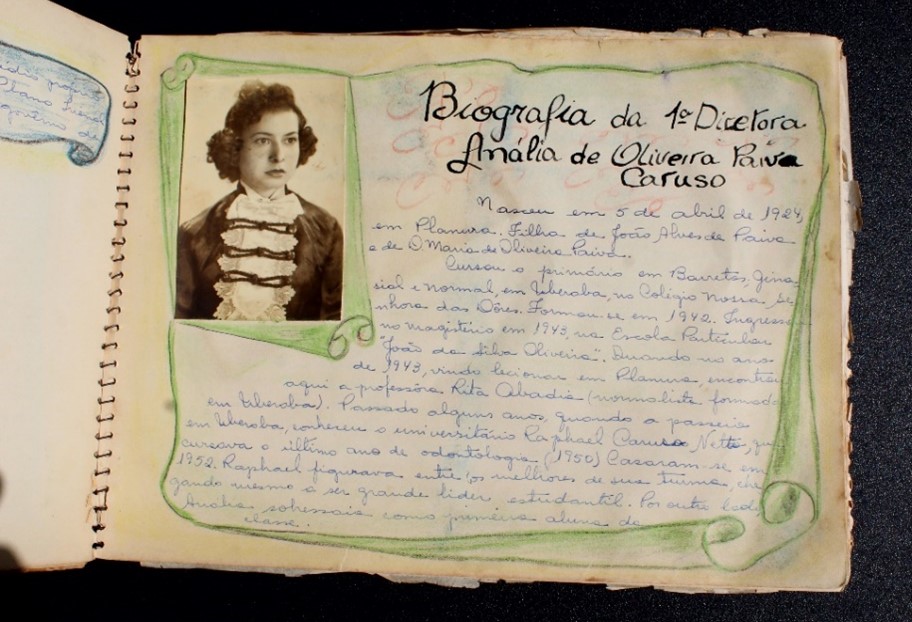 Biografia da 1ª Diretora
Anália de Oliveira Paiva
Caruso
Nasceu em 5 de abril de 1924,
em Planura. Filha de João Alves de Paiva
e de D. Maria de Oliveira Paiva.
Cursou o primário em Barretos, Gina-
sial e normal, em Uberaba, no Colégio Nossa Se-
nhora das Dôres. Formou-se em 1942. Ingressou
no magistério em 1943, na Escola Particular
"João da Silva Oliveira". Durando no ano
de 1943, vindo lecionar em Planura, encontrou
aqui a professôra Rita Abadia (normalista formada
em Uberaba). Passado alguns anos, quando a passeio
em Uberaba, conheceu o universitário Raphael Caruso Netto, que
cursava o último ano de odontologia (1950) Casaram-se em
1952. Raphael figurava entre os melhores de sua turma, che-
gando mesmo a ser grande lider estudantil. Por outro lado
Anália sobressaia como primeira aluna da
classe.